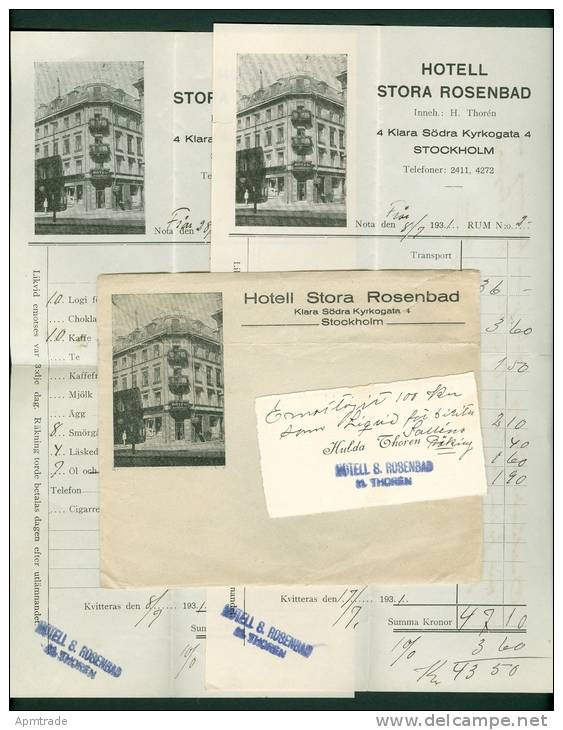 STOR
4 Klara S
Nota den 28/
Likvid emotses var 3:dje dag. Räkning torde betalas dagen efter utlämnandet
10 Logi f
Chokla
10 Kaffe
Te
Kaffefr
Mjölk
Ägg
8 Smörgå
4 Läsked
7 Öl och
Telefon
Cigarre
Kvitteras den 8/9 1931.
Summ
10%
HOTELL S. ROSENBAD
H. THORÉN
HOTELL
STORA ROSENBAD
Inneh.: H. Thorén
4 Klara Södra Kyrkogata 4
STOCKHOLM
Telefoner: 2411, 4272
Nota den 8/7 1931. RUM No. 2
Transport
36 -
3 60
1 50
2 10
40
1 90
Kvitteras den 17/7 1931.
Summa Kronor 47 10
10% 3 60
Kr 43 50
HOTELL S. ROSENBAD
H. THORÉN
Hotell Stora Rosenbad
Klara Södra Kyrkogata 4
Stockholm
100 Kr
som Likvid för
Hulda Thorén Räkning
HOTELL S. ROSENBAD
H. THORÉN
Apmtrade
delcampe.net